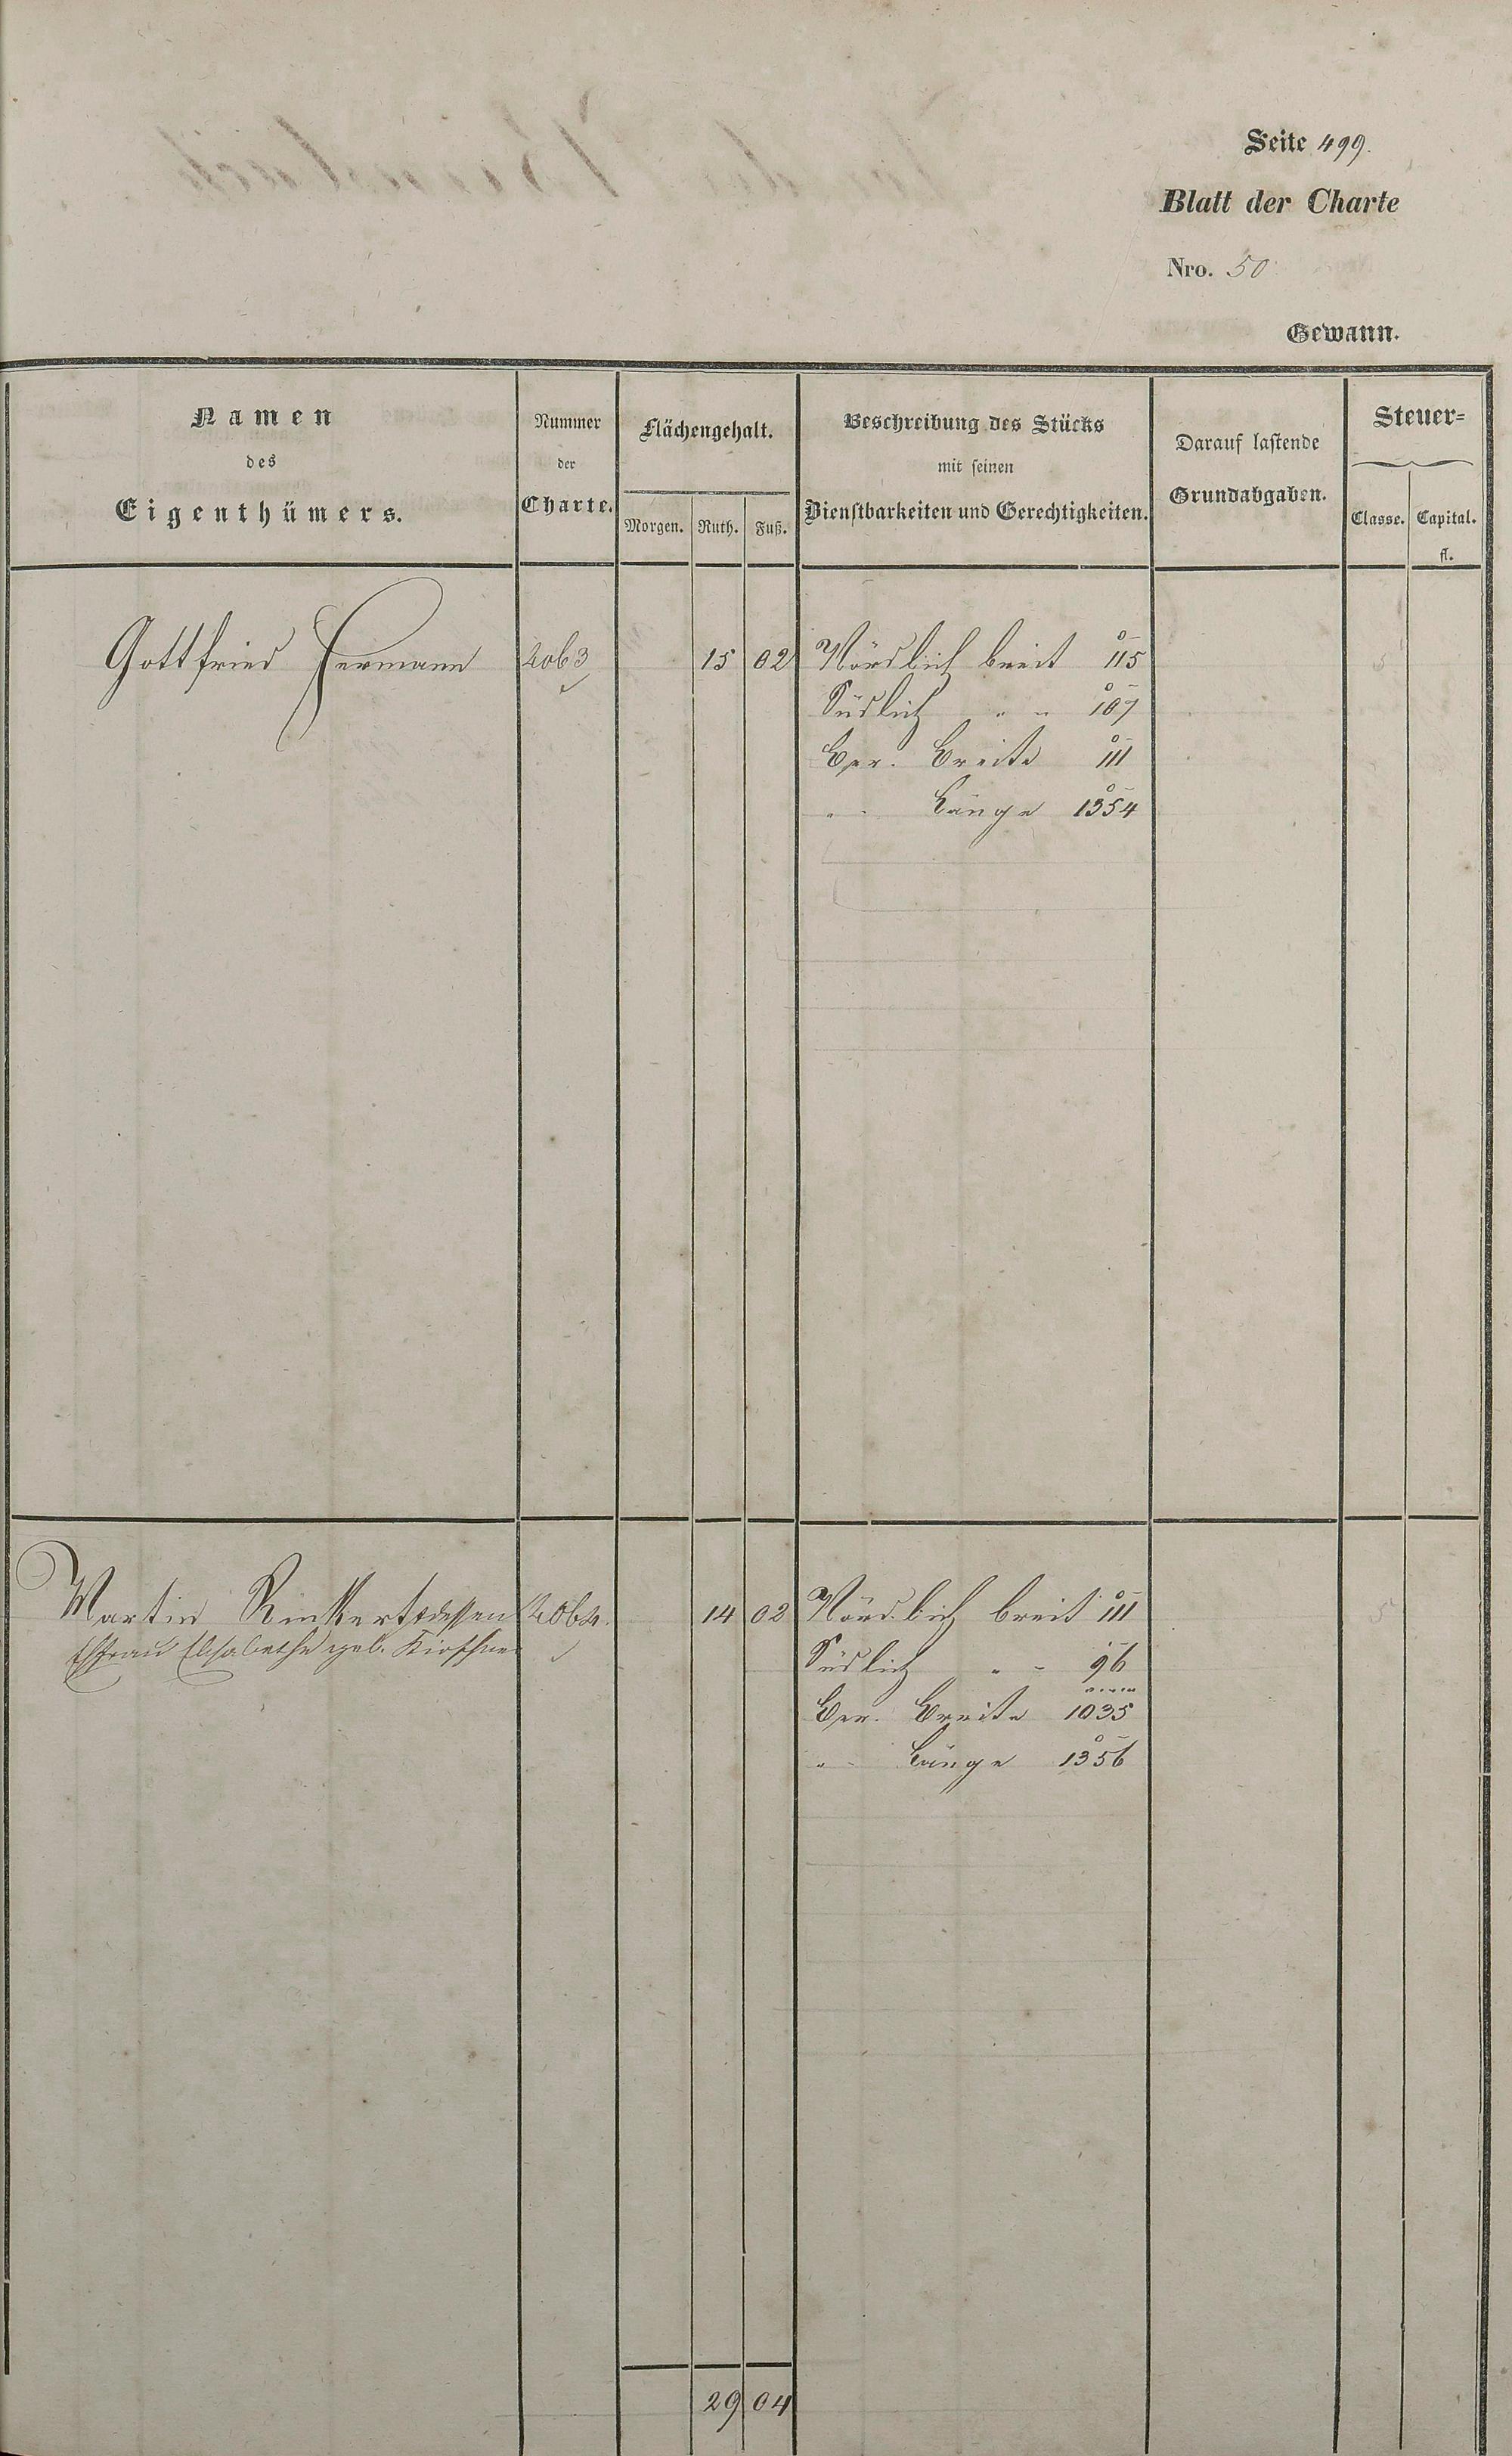 Seite 499.
Blatt der Charte
Nro. 50
Gewann.
Namen
des
Eigenthümers.
Nummer
der
Charte.
Flächengehalt.
Morgen. Ruth. Fuß.
Beschreibung des Stücks
mit seinen
Dienstbarkeiten und Gerechtigkeiten.
Darauf lastende
Grundabgaben.
Steuer-
Classe. Capital.
fl.
Gottfried Hermann 2063 15 02 Nördlich breit 115 5
Südlich " " 107
Ber. Breite 111
" " Länge 1354
Martin Rinkert dessen 2064. 14 02 Nördlich breit 111 5
Ehfrau Elisabethe geb. Kirschner Südlich " " 96
Ber. Breite 1035
" " Länge 1356
29 04